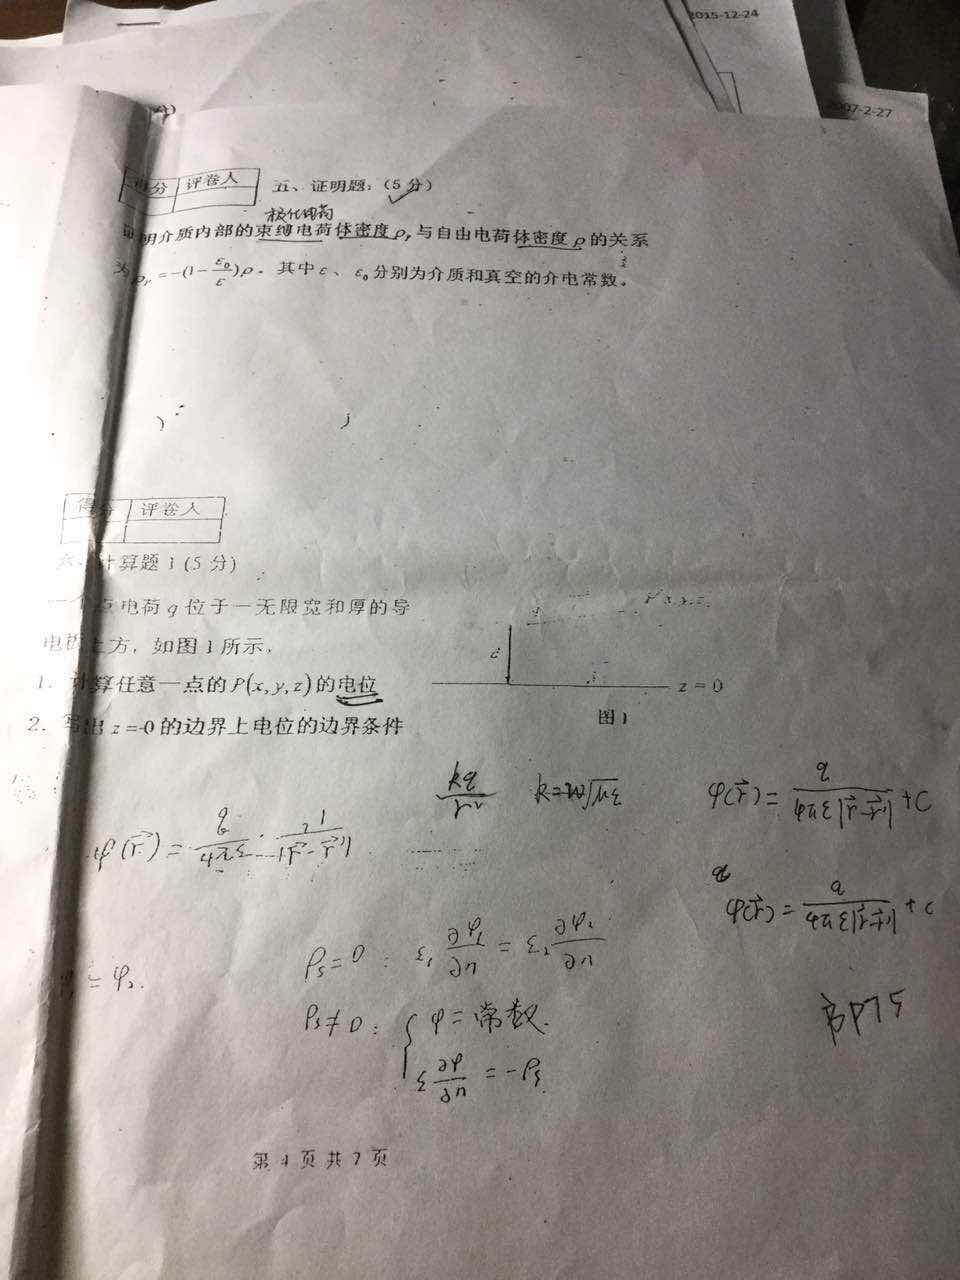 2015-12-24
2007-2-27
得分 评卷人
五、证明题：(5分)
极化电荷
明介质内部的束缚电荷体密度ρ_r与自由电荷体密度ρ的关系
为ρ_r=-(1-ε₀/ε)ρ。其中ε、ε₀分别为介质和真空的介电常数。
得分 评卷人
六、计算题1(5分)
一个点电荷q位于一无限宽和厚的导
电板上方，如图1所示，
1. 计算任意一点的P(x,y,z)的电位
z=0
2. 写出z=0的边界上电位的边界条件
图1
kq/r²
φ(r⃗)=q/(4πε|r⃗-r⃗'|)+C
φ(r⃗)=q/4πε·1/|r⃗-r⃗'|
φ(r⃗)=q/(4πε|r⃗-r⃗'|)+C
ρs=0: ε₁∂φ₁/∂n=ε₂∂φ₂/∂n
=φ₂.
ρs≠0: {φ=常数.
ε∂φ/∂n=-ρs
第4页共7页